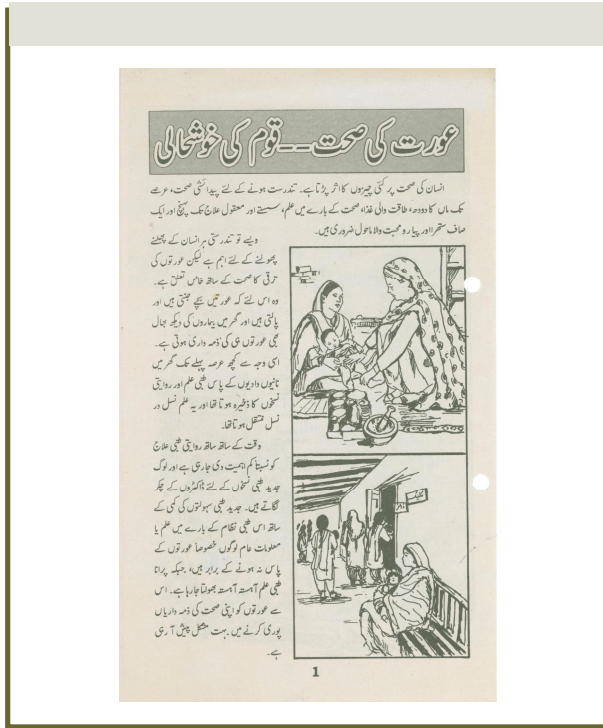 عورت کی صحت--قوم کی خوشحالی
انسان کی صحت پر کئی چیزوں کا اثر پڑتا ہے۔ تندرست ہونے کے لئے پیدائشی صحت، عرصے
تک ماں کا دودھ، طاقت والی غذا، صحت کے بارے میں علم، سستے اور معقول علاج تک پہنچ اور ایک
صاف ستھرا اور پیار و محبت والا ماحول ضروری ہیں۔
ویسے تو تندرستی ہر انسان کے پھلنے
پھولنے کے لئے اہم ہے لیکن عورتوں کی
ترقی کا صحت کے ساتھ خاص تعلق ہے۔
وہ اس لئے کہ عورتیں بچے جنتی ہیں اور
پالتی ہیں اور گھر میں بیماروں کی دیکھ بھال
بھی عورتوں ہی کی ذمہ داری ہوتی ہے۔
اسی وجہ سے کچھ عرصہ پہلے تک گھر میں
نانیوں دادیوں کے پاس طبی علم اور روایتی
نسخوں کا ذخیرہ ہوتا تھا اور یہ علم نسل در
نسل منتقل ہوتا تھا۔
وقت کے ساتھ ساتھ روایتی طبی علاج
کو نسبتاً کم اہمیت دی جا رہی ہے اور لوگ
جدید طبی نسخوں کے لئے ڈاکٹروں کے چکر
لگاتے ہیں۔ جدید طبی سہولتوں کی کمی کے
ساتھ اس طبی نظام کے بارے میں علم یا
معلومات عام لوگوں خصوصاً عورتوں کے
پاس نہ ہونے کے برابر ہیں، جبکہ پرانا
طبی علم آہستہ آہستہ بھولتا جا رہا ہے۔ اس
سے عورتوں کو اپنی صحت کی ذمہ داریاں
پوری کرنے میں بہت مشکل پیش آ رہی
ہے۔
1